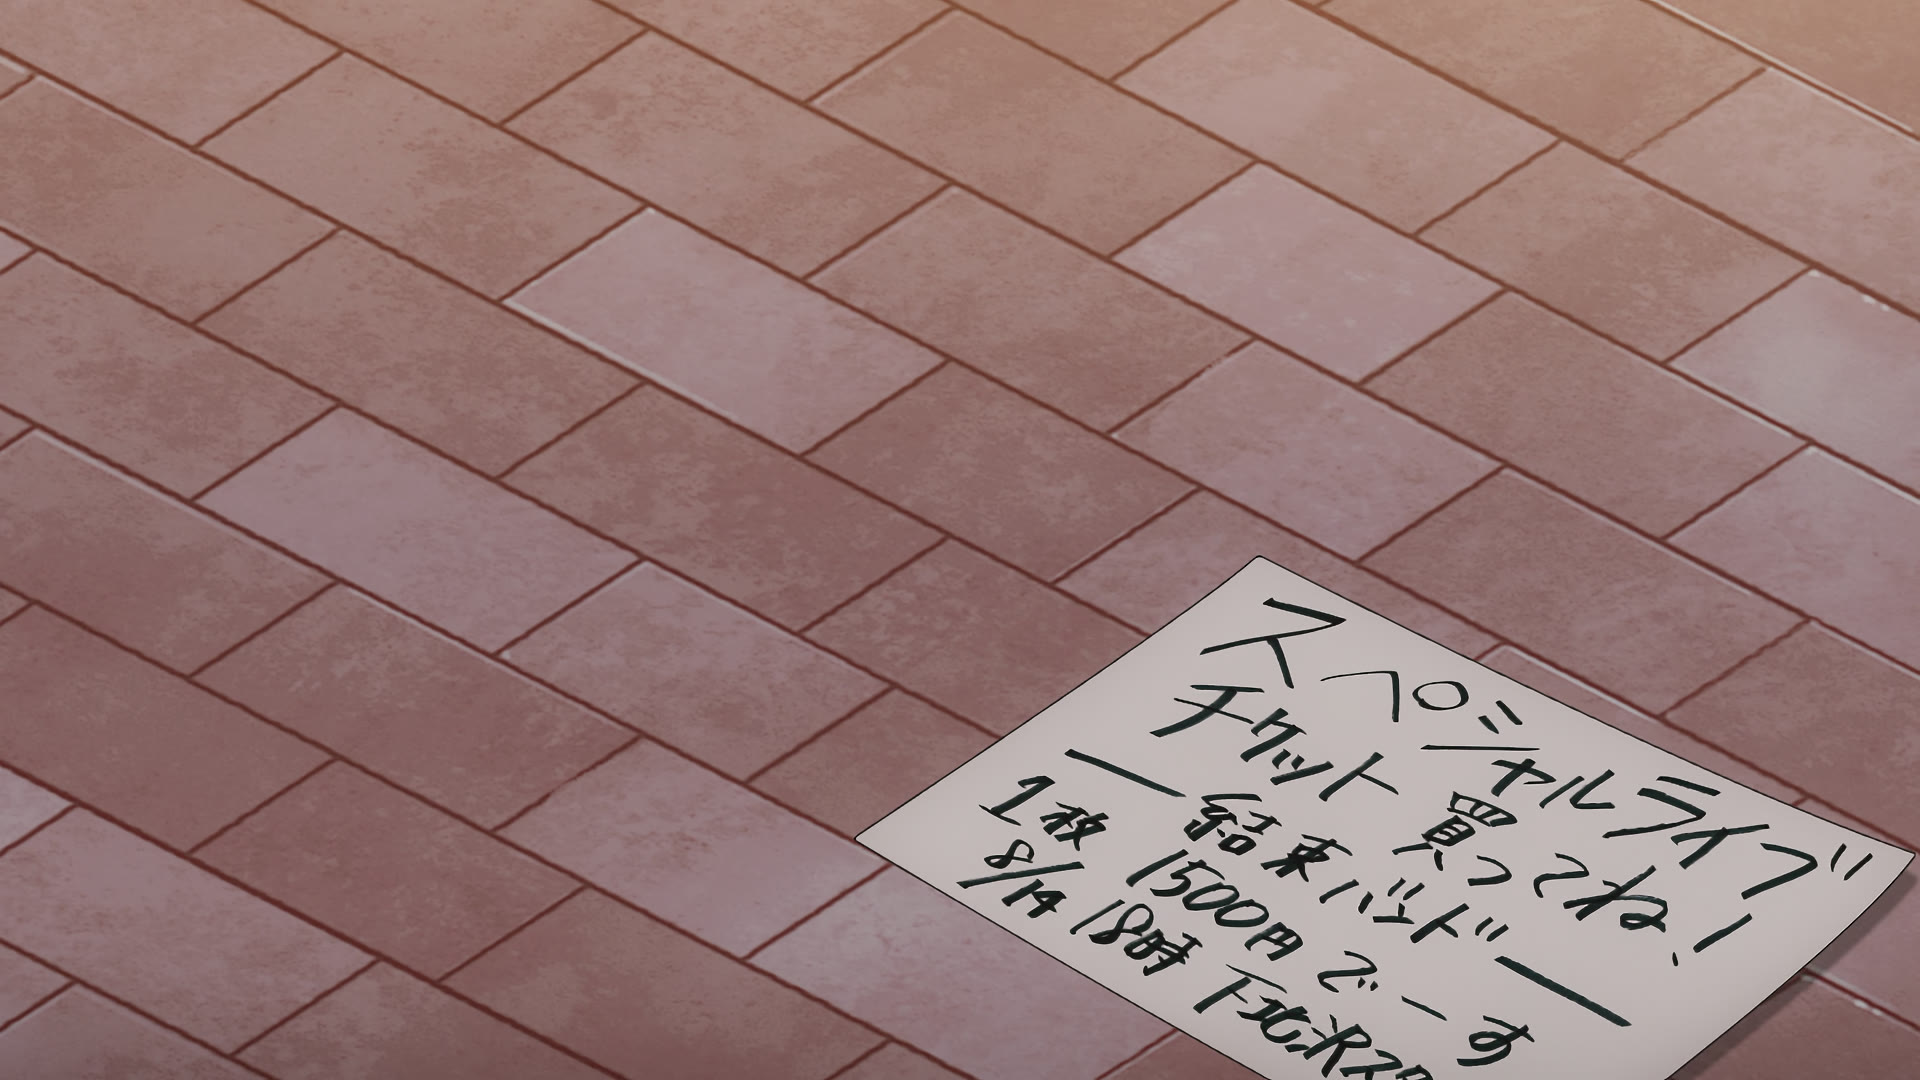 スペシャルライブ
チケット 買ってね、!
― 結束バンド ―
1枚 1500円でーす
8/14 18時 下北沢スタ